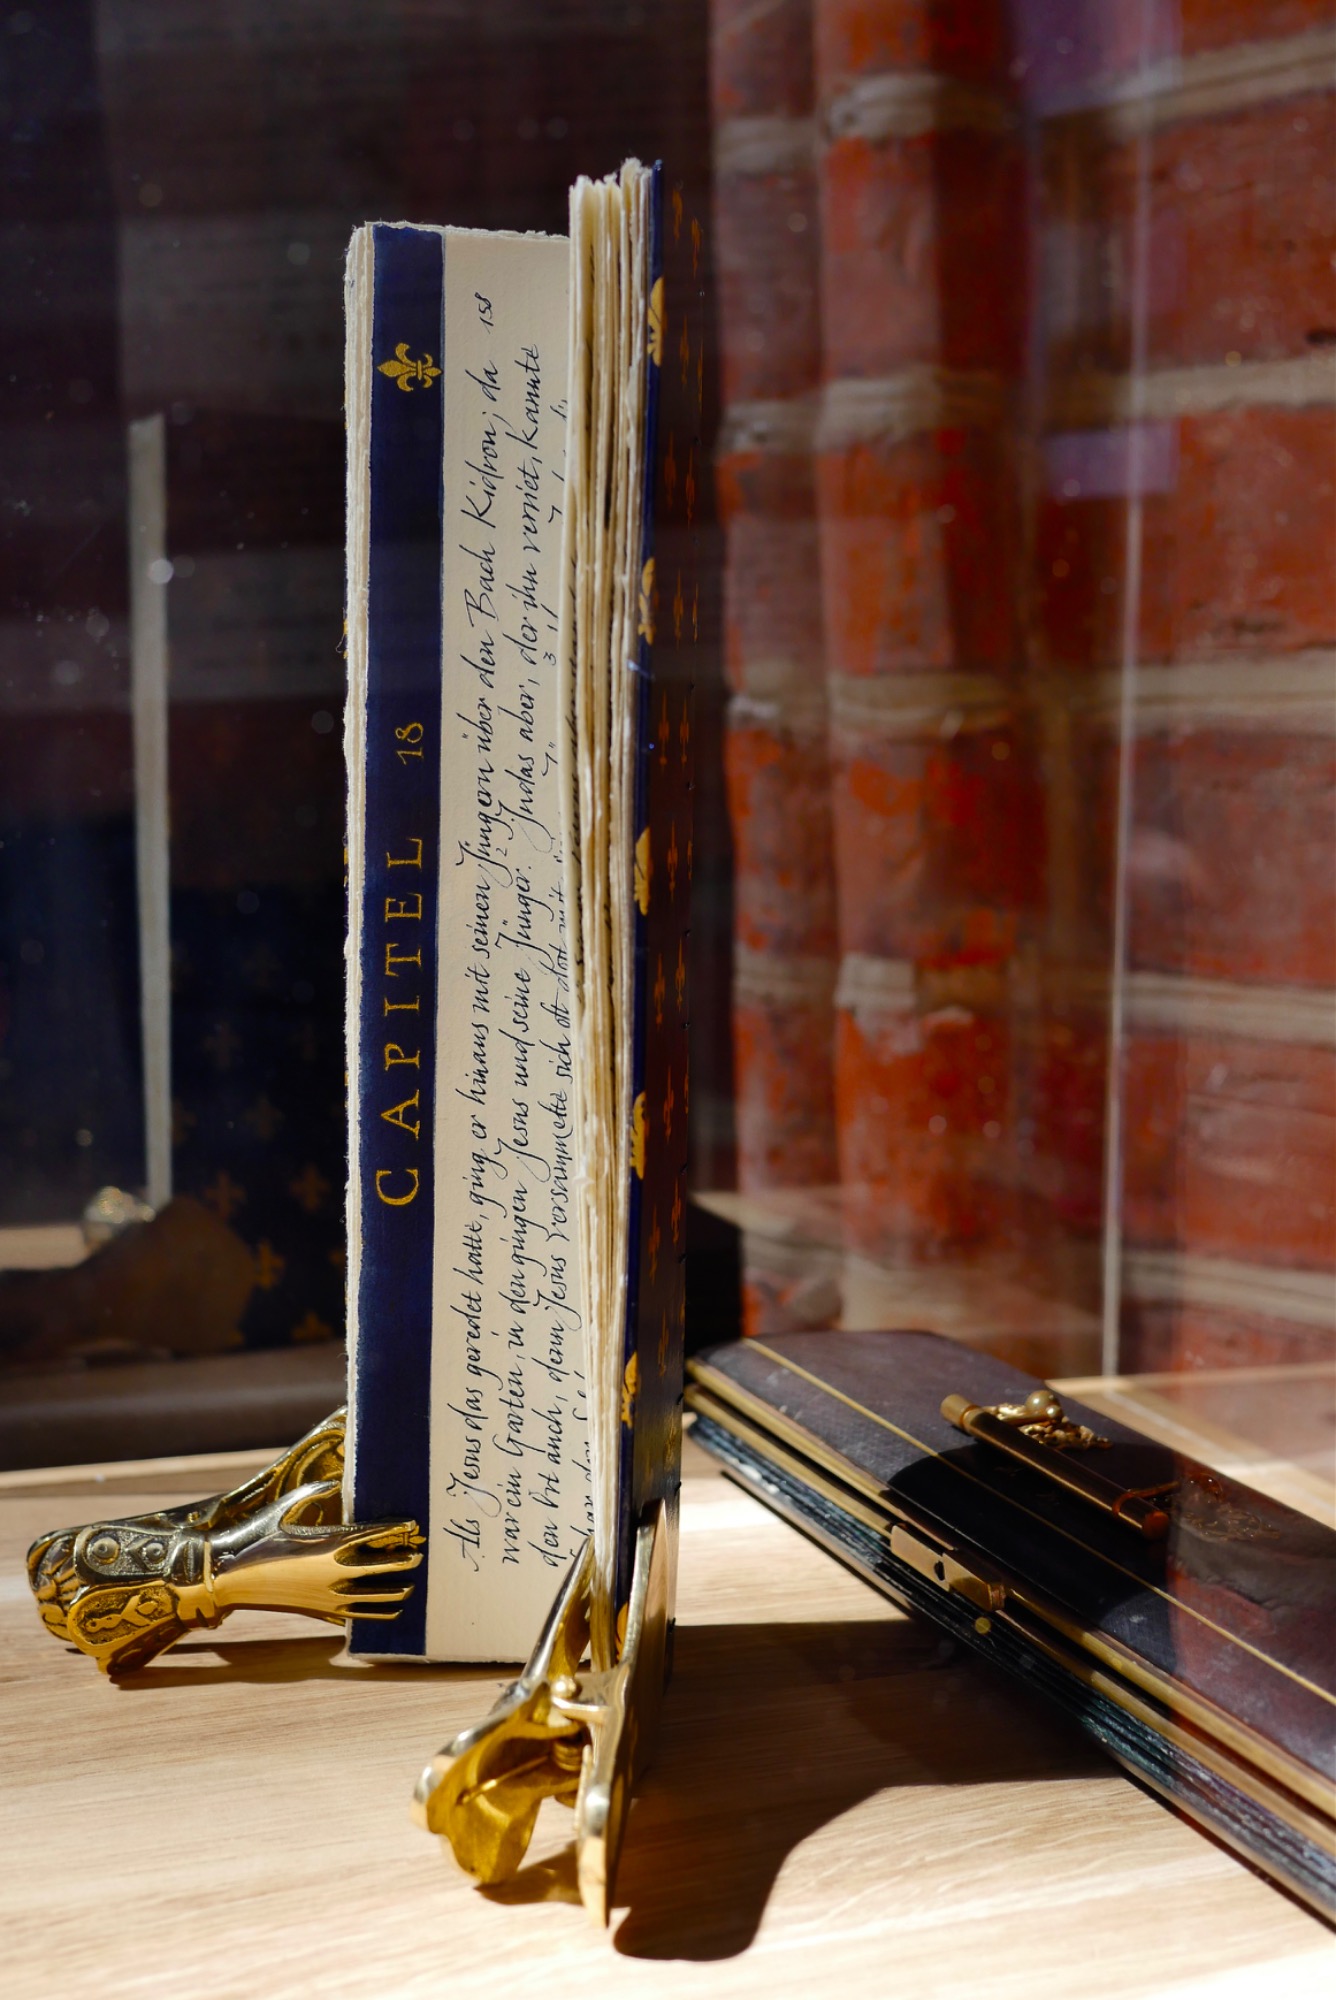 CAPITEL 18
Als Jesus das geredet hatte, ging er hinaus mit seinen Jüngern über den Bach Kidron; da
war ein Garten, in den gingen Jesus und seine Jünger. 2 Judas aber, der ihn verriet, kannte
den Ort auch, denn Jesus versammelte sich oft dort mit
3